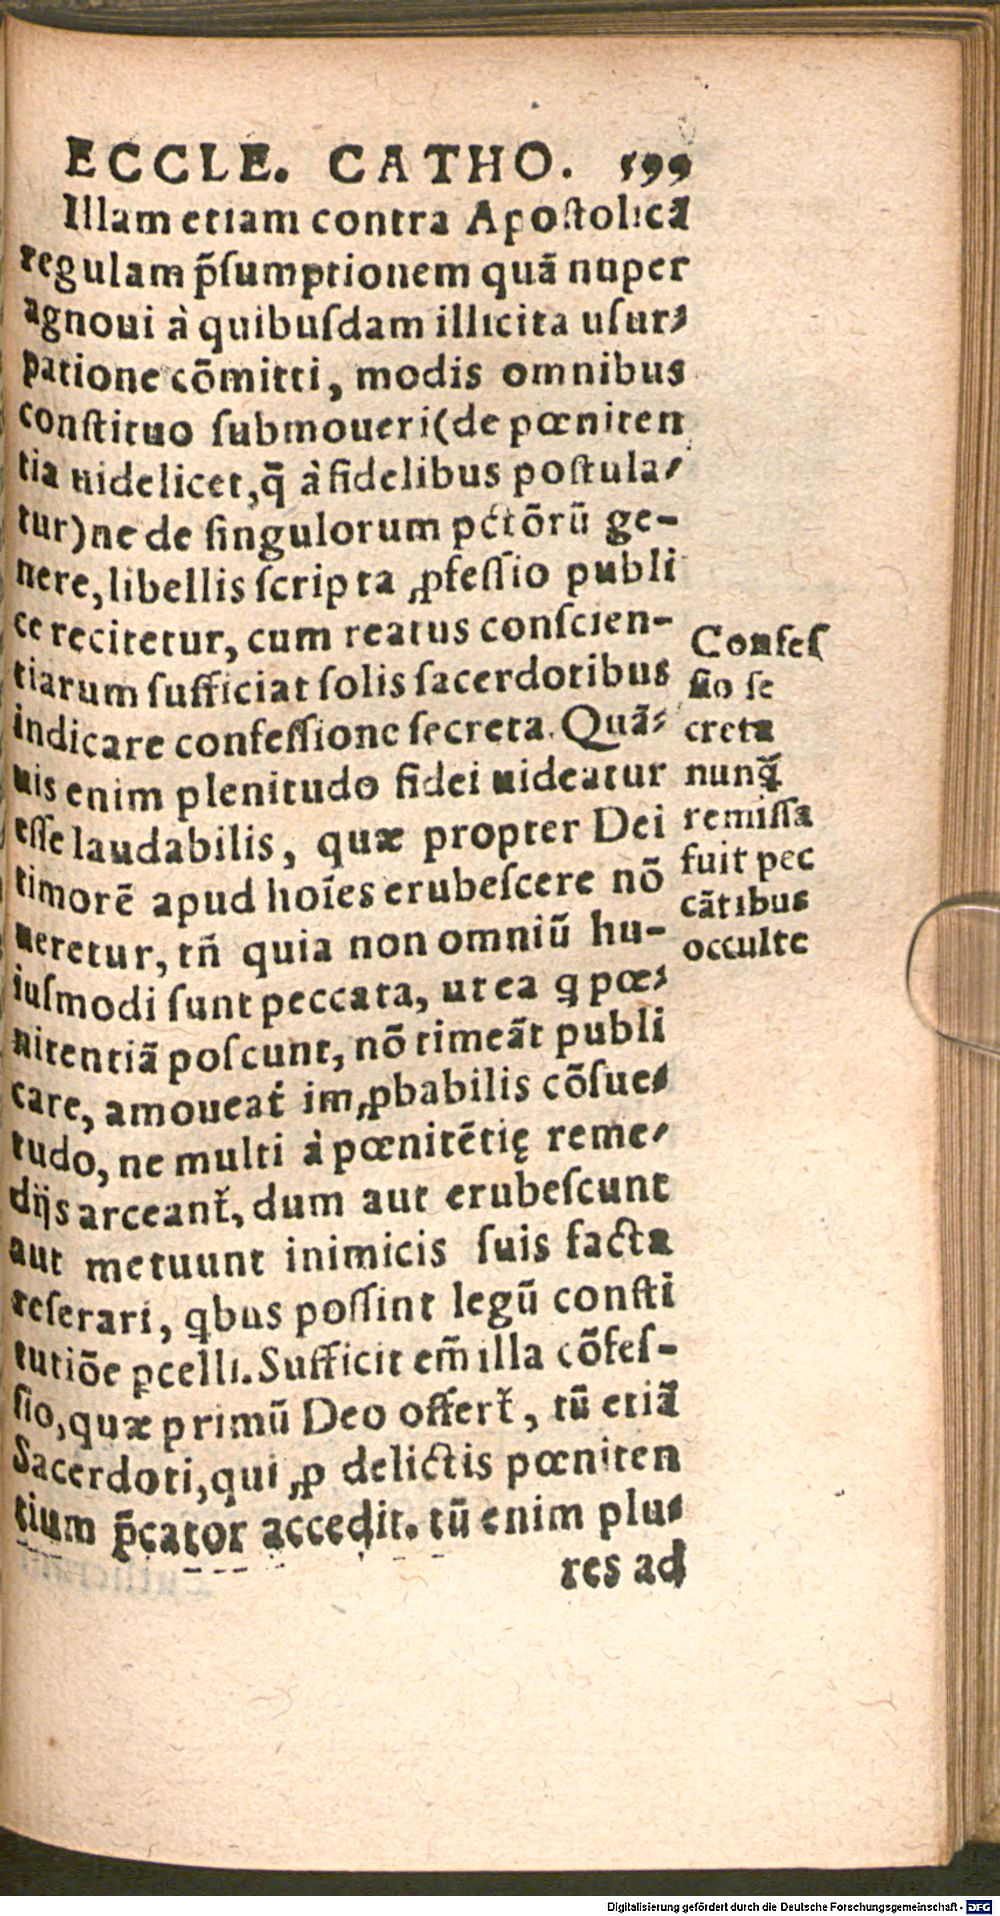 ECCLE. CATHO. 599
Illam etiam contra Apostolicã
regulam p̃sumptionem quã nuper
agnoui à quibusdam illicita usur⸗
patione cõmitti, modis omnibus
constituo submoueri(de pœniten
tia uidelicet,q̃ à fidelibus postula⸗
tur)ne de singulorum pctõrũ ge-
nere,libellis scripta ꝓfessio publi
ce recitetur, cum reatus conscien-
tiarum sufficiat solis sacerdotibus
indicare confessione secreta. Quã⸗
uis enim plenitudo fidei uideatur
esse laudabilis, quæ propter Dei
timorẽ apud hoĩes erubescere nõ
ueretur, tñ quia non omniũ hu-
iusmodi sunt peccata, ut ea q pœ⸗
nitentiã poscunt, nõ timeãt publi
care, amoueat᷑ imꝓbabilis cõsue⸗
tudo, ne multi à pœnitẽtię reme⸗
dijs arceant᷑, dum aut erubescunt
aut metuunt inimicis suis facta
reserari, qbus possint legũ consti
tutiõe ꝑcelli. Sufficit em̃ illa cõfes-
sio,quæ primũ Deo offert᷑, tũ etiã
Sacerdoti,qui ꝓ delictis pœniten
tium p̃cator accedit. tũ enim plu⸗
res ad
Confes
sio se
creta
nunq̃
remissa
fuit pec
cãtibus
occulte
Digitalisierung gefördert durch die Deutsche Forschungsgemeinschaft - DFG